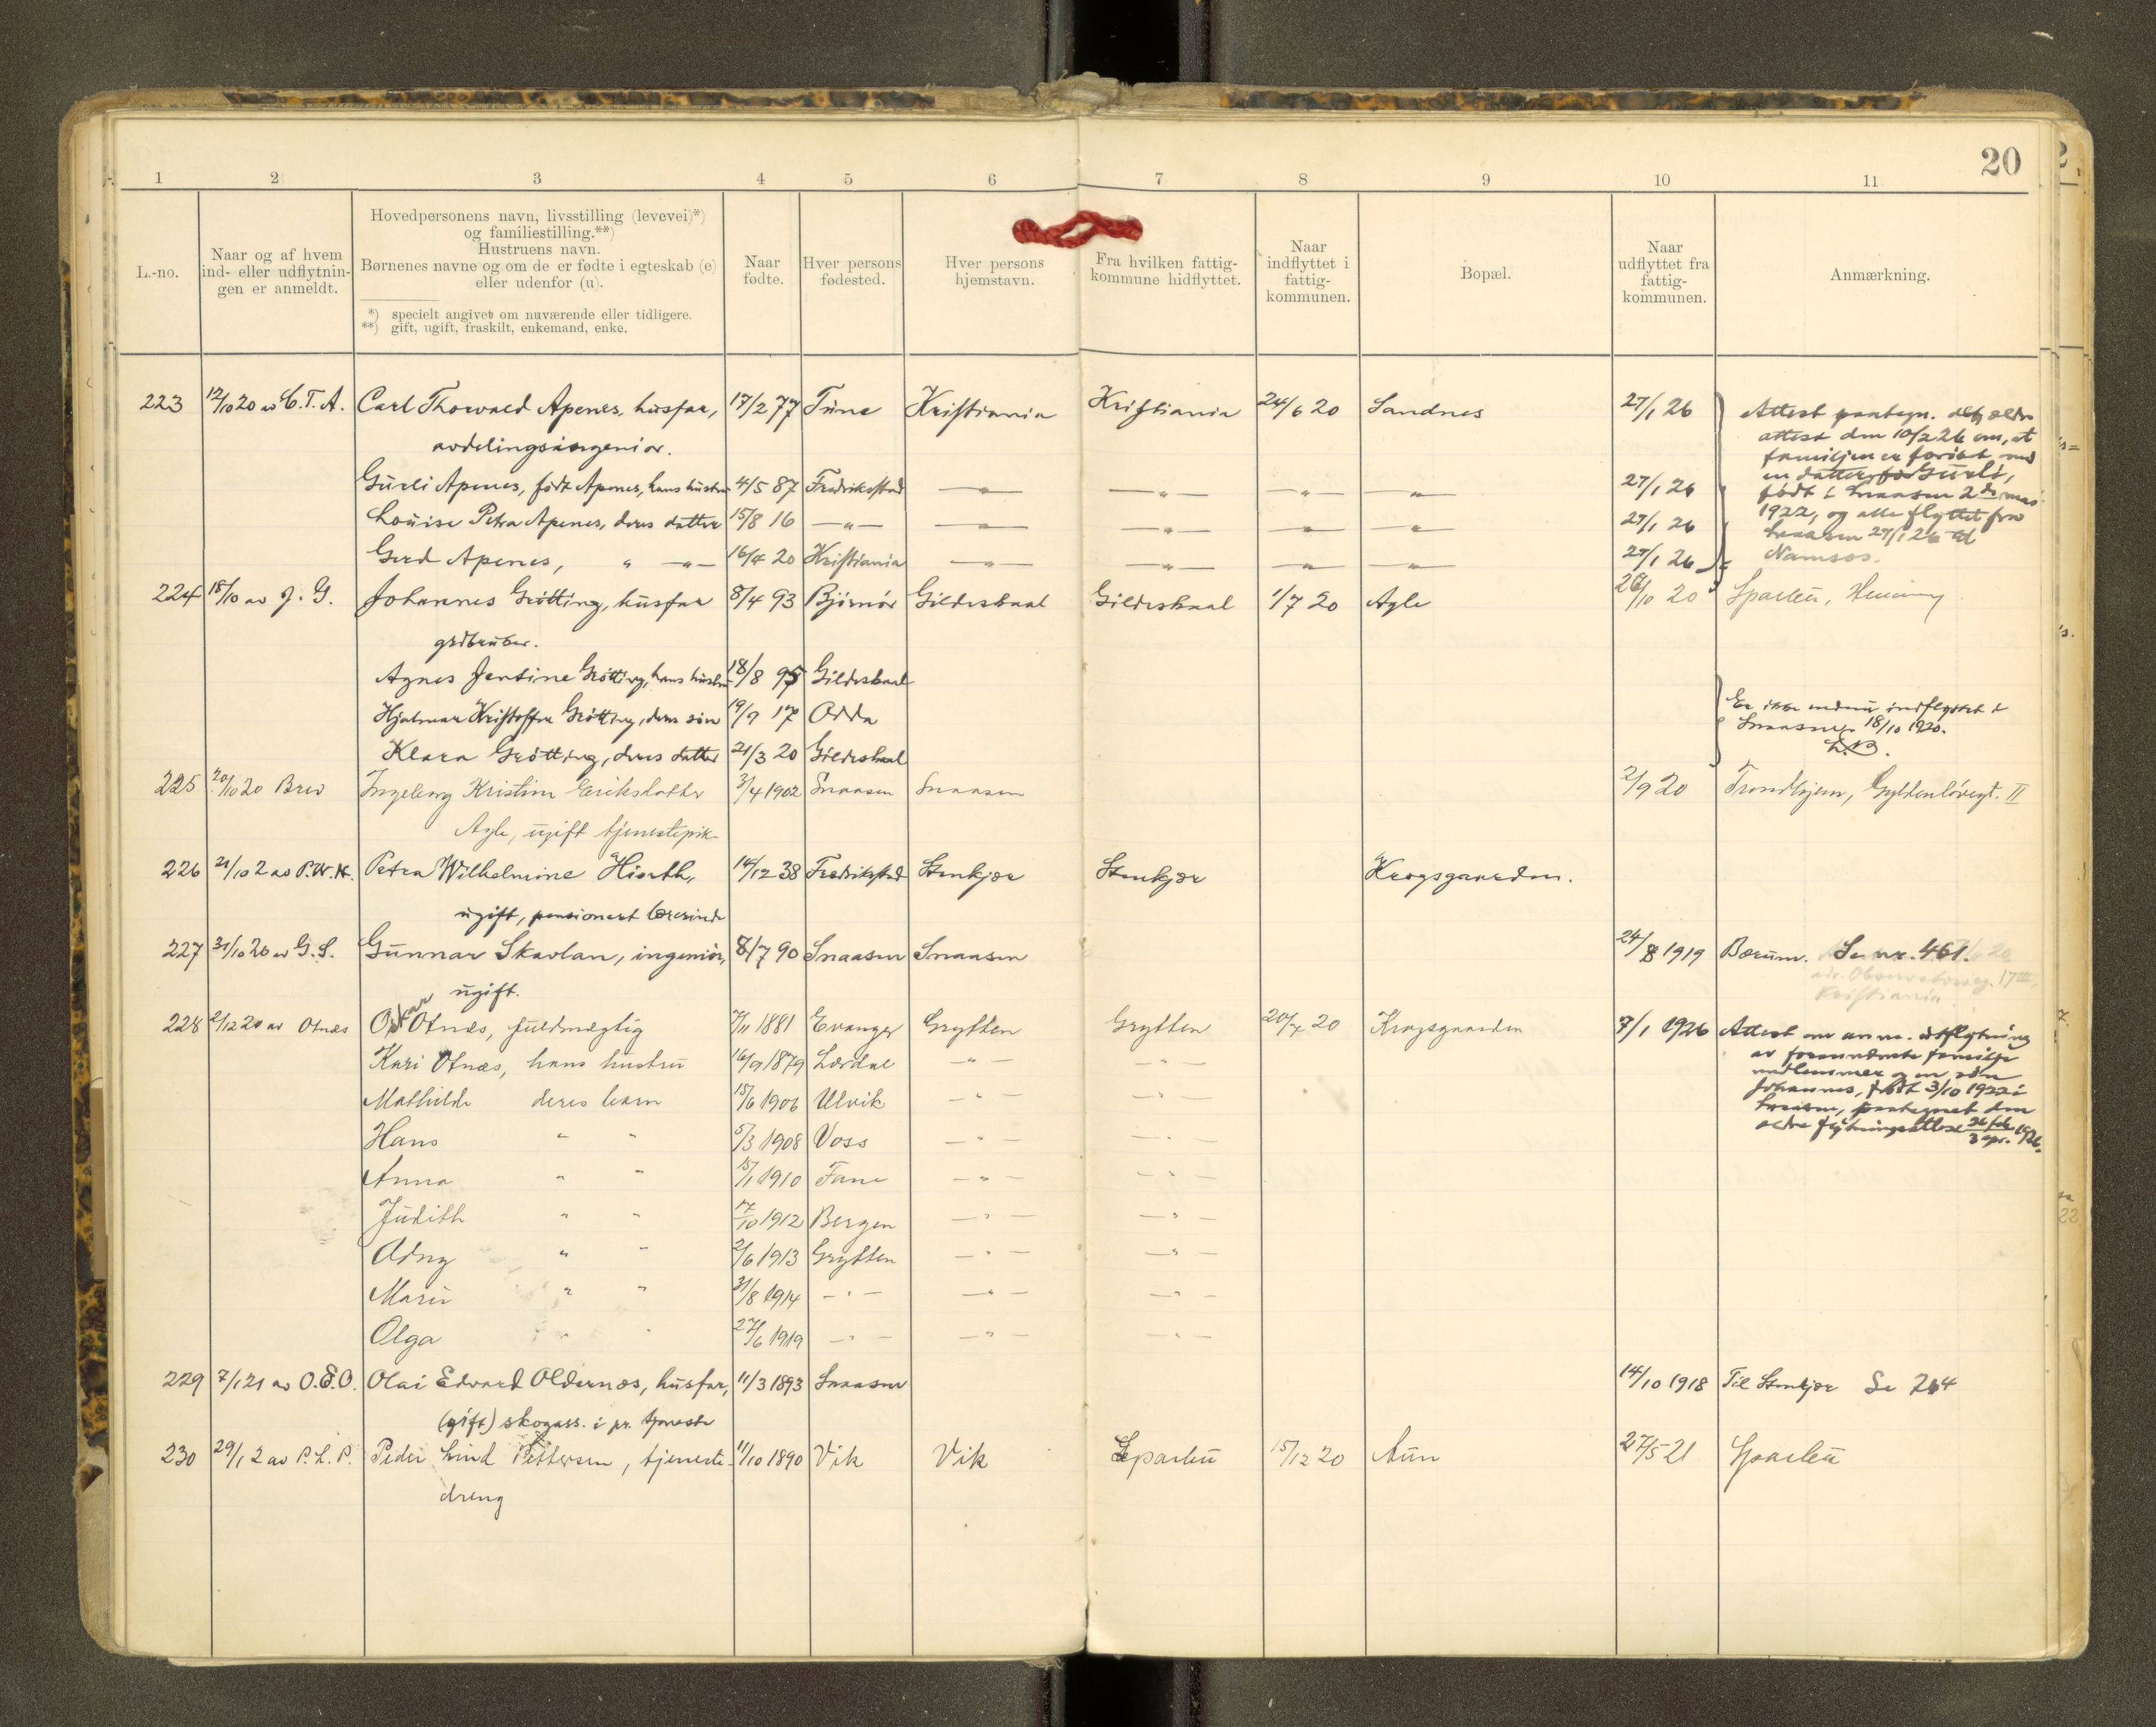 20
1 2 3 4 5 6 7 8 9 10 11
L.-no.
Naar og af hvem
ind- eller udflytnin-
gen er anmeldt.
Hovedpersonens navn, livsstilling (levevei)*)
og familiestilling.**)
Hustruens navn.
Børnenes navne og om de er fødte i egteskab (e)
eller udenfor (u).
*) specielt angivet om nuværende eller tidligere.
**) gift, ugift, fraskilt, enkemand, enke.
Naar
fødte.
Hver persons
fødested.
Hver persons
hjemstavn.
Fra hvilken fattig-
kommune hidflyttet.
Naar
indflyttet i
fattig-
kommunen.
Bopæl.
Naar
udflyttet fra
fattig-
kommunen.
Anmærkning.
223 12/10 20 av C.T.A. Carl Thorvald Apenes, husfar, 17/2 77 Tune Kristiania Kristiania 24/6 20 Sandnes 27/1 26
avdelingsingeniør.
Gurli Apenes, født Apenes, hans hustru 4/5 87 Fredrikstad —"— —"— —"— —"— 27/1 26
Louise Petra Apenes, deres datter 15/8 16 —"— —"— —"— —"— —"— 27/1 26
Gerd Apenes, " —"— 16/4 20 Kristiania —"— —"— —"— —"— 27/1 26
Attest paategn. ældre
attest den 10/2 26 om, at
familjen er forøket med
en datter Gurli,
født i Snaasen 2den mai
1922, og alle flyttet fra
Snaasen 27/1 26 til
Namsos.
224 18/10 av J. G. Johannes Grøtting, husfar 8/4 93 Bjørnør Gildeskaal Gildeskaal 1/7 20 Agle 26/10 20 Sparbu, Henning
grdbruker.
Agnes Jentine Grøtting, hans hustru 18/8 95 Gildeskaal
Hjalmar Kristoffer Grøtting, deres søn 19/9 17 Odda
Klara Grøtting, deres datter 21/3 20 Gildeskaal
Er ikke endnu indflyttet i
Snaasen 18/10 1920.
225 20/10 20 Brev Ingeborg Kristine Eriksdatter 3/4 1902 Snaasen Snaasen 2/9 20 Trondhjem, Gyldenløvesgt. II
Agle, ugift tjenestepike
226 21/10 2 av P.W.H. Petra Wilhelmine Hiorth, 14/12 38 Fredrikstad Stenkjær Stenkjær Krogsgaarden.
ugift, pensionert lærerinde
227 31/10 20 av G.S. Gunnar Skavlan, ingeniør, 8/7 90 Snaasen Snaasen 24/8 1919 Bærum. Se nr. 461.
ugift.
Observatorieg. 17 III,
Kristiania.
228 2/12 20 av Otnæs Oskar Otnæs, fuldmægtig 7/11 1881 Evanger Grytten Grytten 20/7 20 Krogsgaarden 7/1 1926
Kari Otnæs, hans hustru 16/9 1879 Lærdal —"— —"—
Mathilde deres barn 15/6 1906 Ulvik —"— —"—
Hans " " 5/3 1908 Voss —"— —"—
Anna " " 15/1 1910 Fane —"— —"—
Judith " " 17/10 1912 Bergen —"— —"—
Odny " " 2/6 1913 Grytten —"— —"—
Marie " " 31/8 1914 —"— —"— —"—
Olga " " 27/6 1919 —"— —"— —"—
Attest om anm. utflytning
av forannævnte familje
medlemmer og en søn
Johannes, født 3/10 1922 i
Snaasen, paategnet den
ældre flytningsattest 26 feb./3 apr. 1926.
229 7/1 21 av O.E.O. Olai Edvard Oldernæs, husfar, 11/3 1893 Snaasen 14/10 1918 Til Stenkjær Se 264
(gift) skogass. i pr. tjeneste
230 29/1 2 av P.L.P. Peder Lind Pettersen, tjeneste- 11/10 1890 Vik Vik Sparbu 15/12 20 Aun 27/5 21 Sparbu
dreng